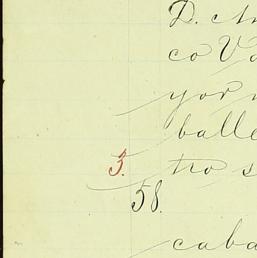 D. An
co Va
yor
balle
3. tro s
58.
caba